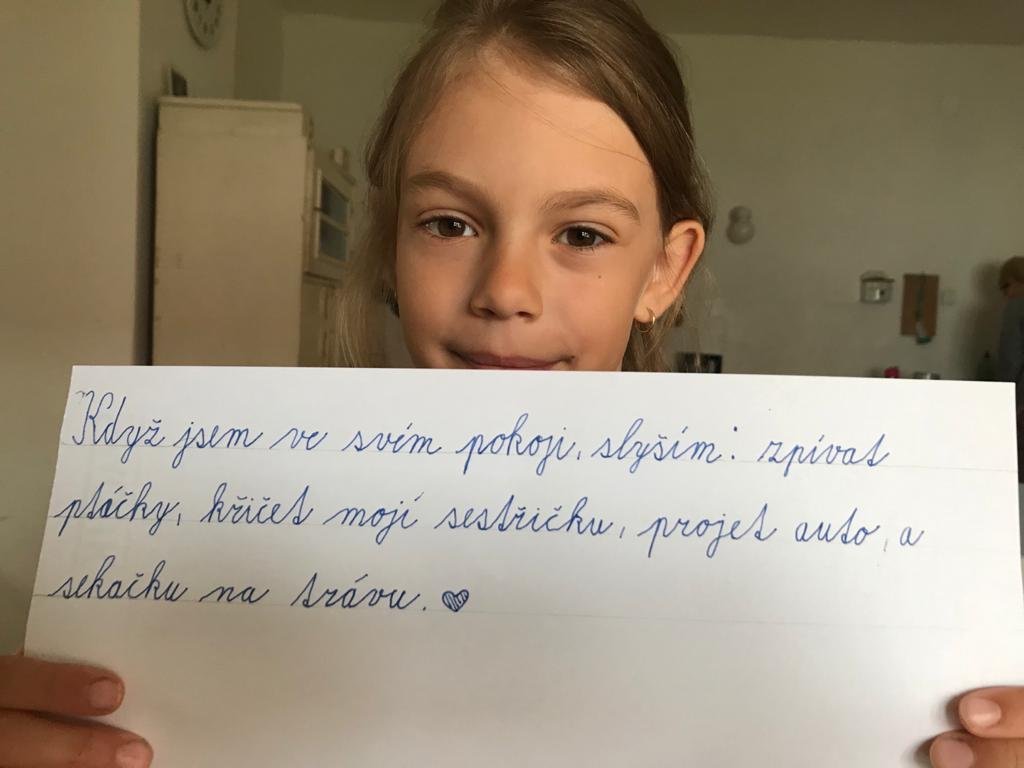 Když jsem ve svém pokoji, slyším: zpívat
ptáčky, křičet mojí sestřičku, projet auto, a
sekačku na trávu.